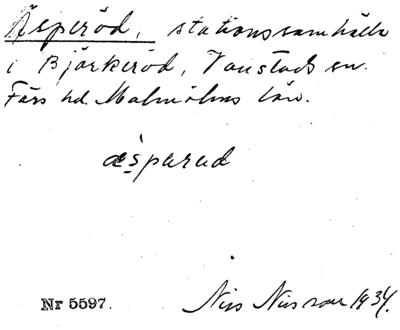 Äsperöd, stationssamhälle
i Björkeröd, Vanstads sn.
Färs hd. Malmöhus län.
æsparud
Nr 5597.
Nils Nilsson 1934.